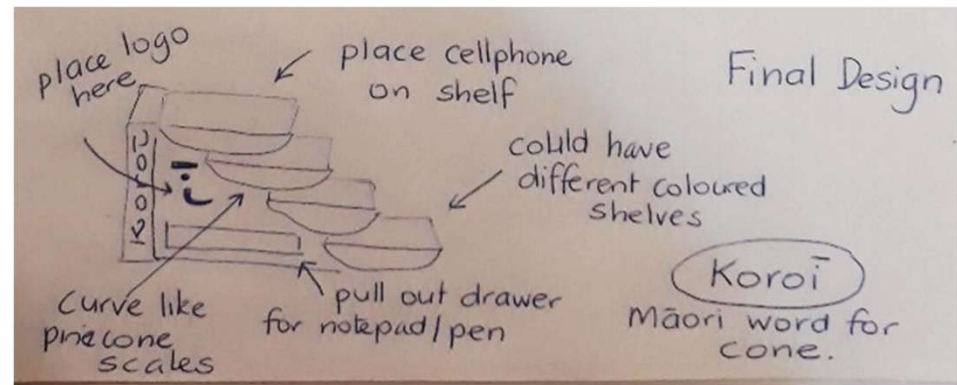 place logo
here
place cellphone
on shelf
Final Design
could have
different coloured
shelves
curve like
pinecone
scales
pull out drawer
for notepad/pen
Koroī
Māori word for
cone.